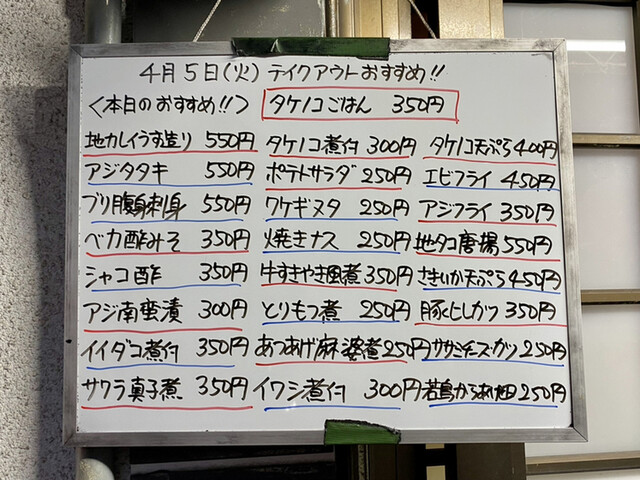 4月5日(火) テイクアウトおすすめ!!
<本日のおすすめ!!> タケノコごはん 350円
地カレイうす造り 550円 タケノコ煮付 300円 タケノコ天ぷら 400円
アジタタキ 550円 ポテトサラダ 250円 エビフライ 450円
ブリ腹身刺身 550円 ワケギヌタ 250円 アジフライ 350円
ベカ酢みそ 350円 焼きナス 250円 地タコ唐揚 550円
シャコ酢 350円 牛すきやき風煮 350円 さきいか天ぷら 450円
アジ南蛮漬 300円 とりもつ煮 250円 豚ヒレカツ 350円
イイダコ煮付 350円 あつあげ麻婆煮 250円 ササミチーズカツ 250円
サワラ真子煮 350円 イワシ煮付 300円 若鳥からあげ 250円